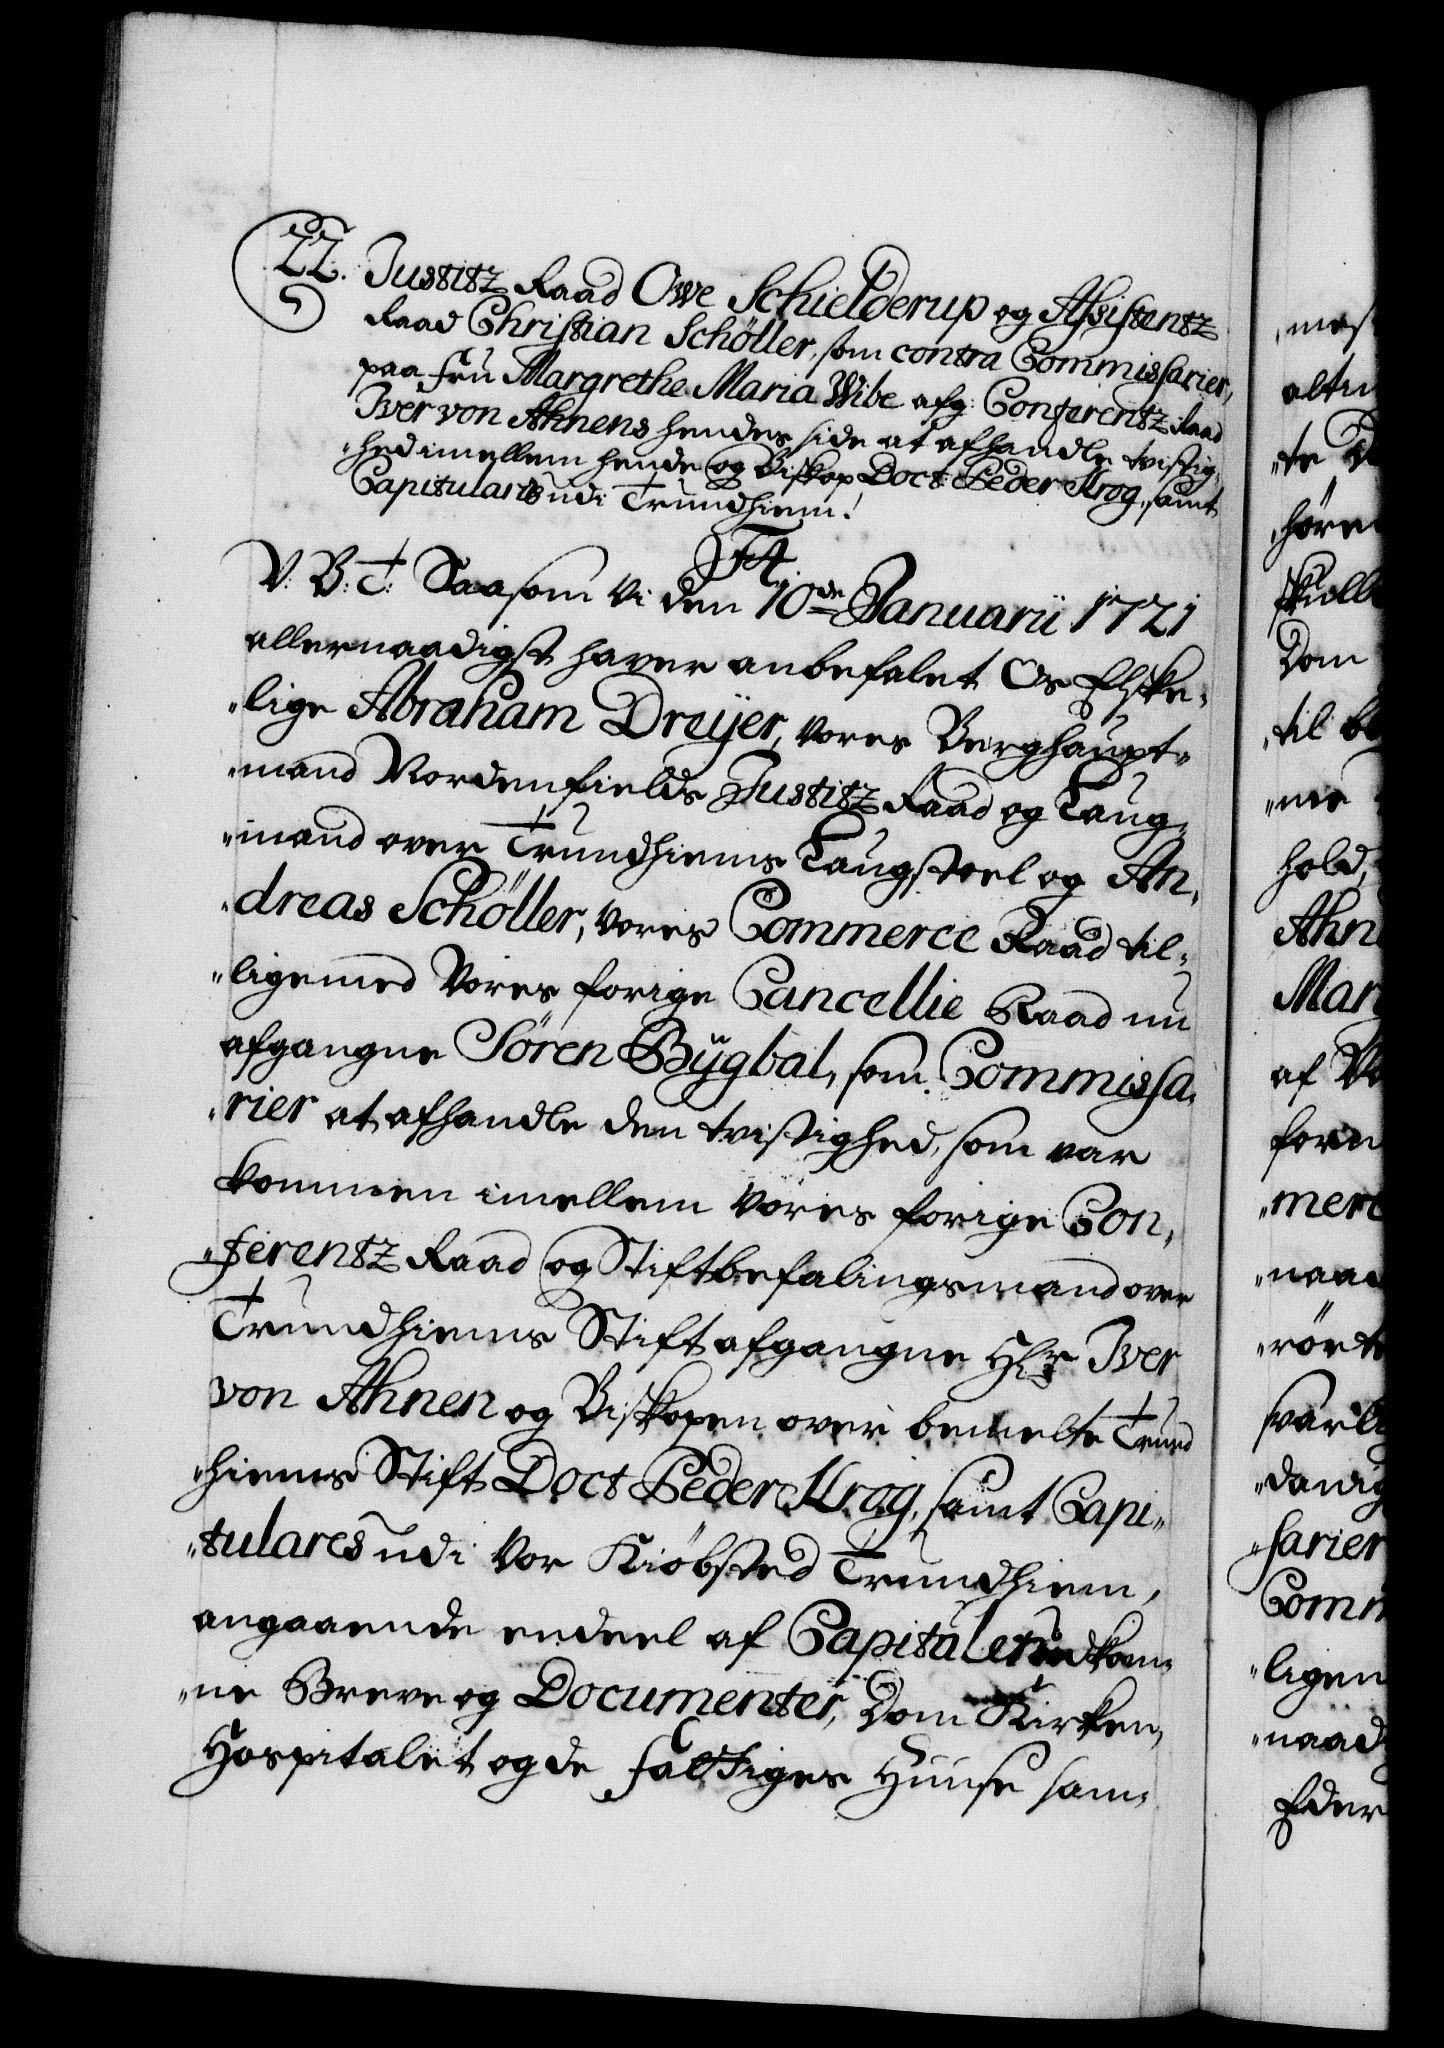 22. Justitz Raad Owe Schielderup og Assistentz
Raad Christian Schöller, som contra Commissarier,
paa Fru Margrethe Maria Wibe afg: Conferentz Raad
Iver von Ahnens hendes side at afhandle tvistig,
"hed imellem hende og Biskop Doct: Peder Krog, samt
Capitulares udi Trundhiem!
F4.
V: B: T: Saasom Vi den 10de Januarii 1721
allernaadigst haver anbefalet Os Elske,
"lige Abraham Dreÿer, Vores Berghaupt,,
"mand Nordenfields Justitz Raad og Laug,
"mand over Trundhiems Laugstoel og An,
"dreas Schöller, Vores Commerce Raad til,
"ligemed Vores forige Cancellie Raad nu
afgangne Sören Bÿgbal, som Commissa,
"rier at afhandle den tvistighed, som var
kommen imellem Vores forige Con,
"ferentz Raad og Stiftbefalingsmand over
Trundhiems Stift afgangne Hr Iver
von Ahnen og Biskopen over bemelte Trund
"hiems Stift Doct Peder Krog, samt Capi,,
"tulares udi Vor Kiöbsted Trundhiem,
angaaende endeel af Capitulet undkom,
"ne Breve og Documenter, Dom Kirken,
Hospitalet og de Fattiges Huuse sam,
alti
"te
höre
skulle
Dom
"til be
"me
hold,
Ahn
Mar
af Vo
form
"merc
"naad
"rört
svarl
"danig
"sarier
Comm
"ligem
"naad
Eder